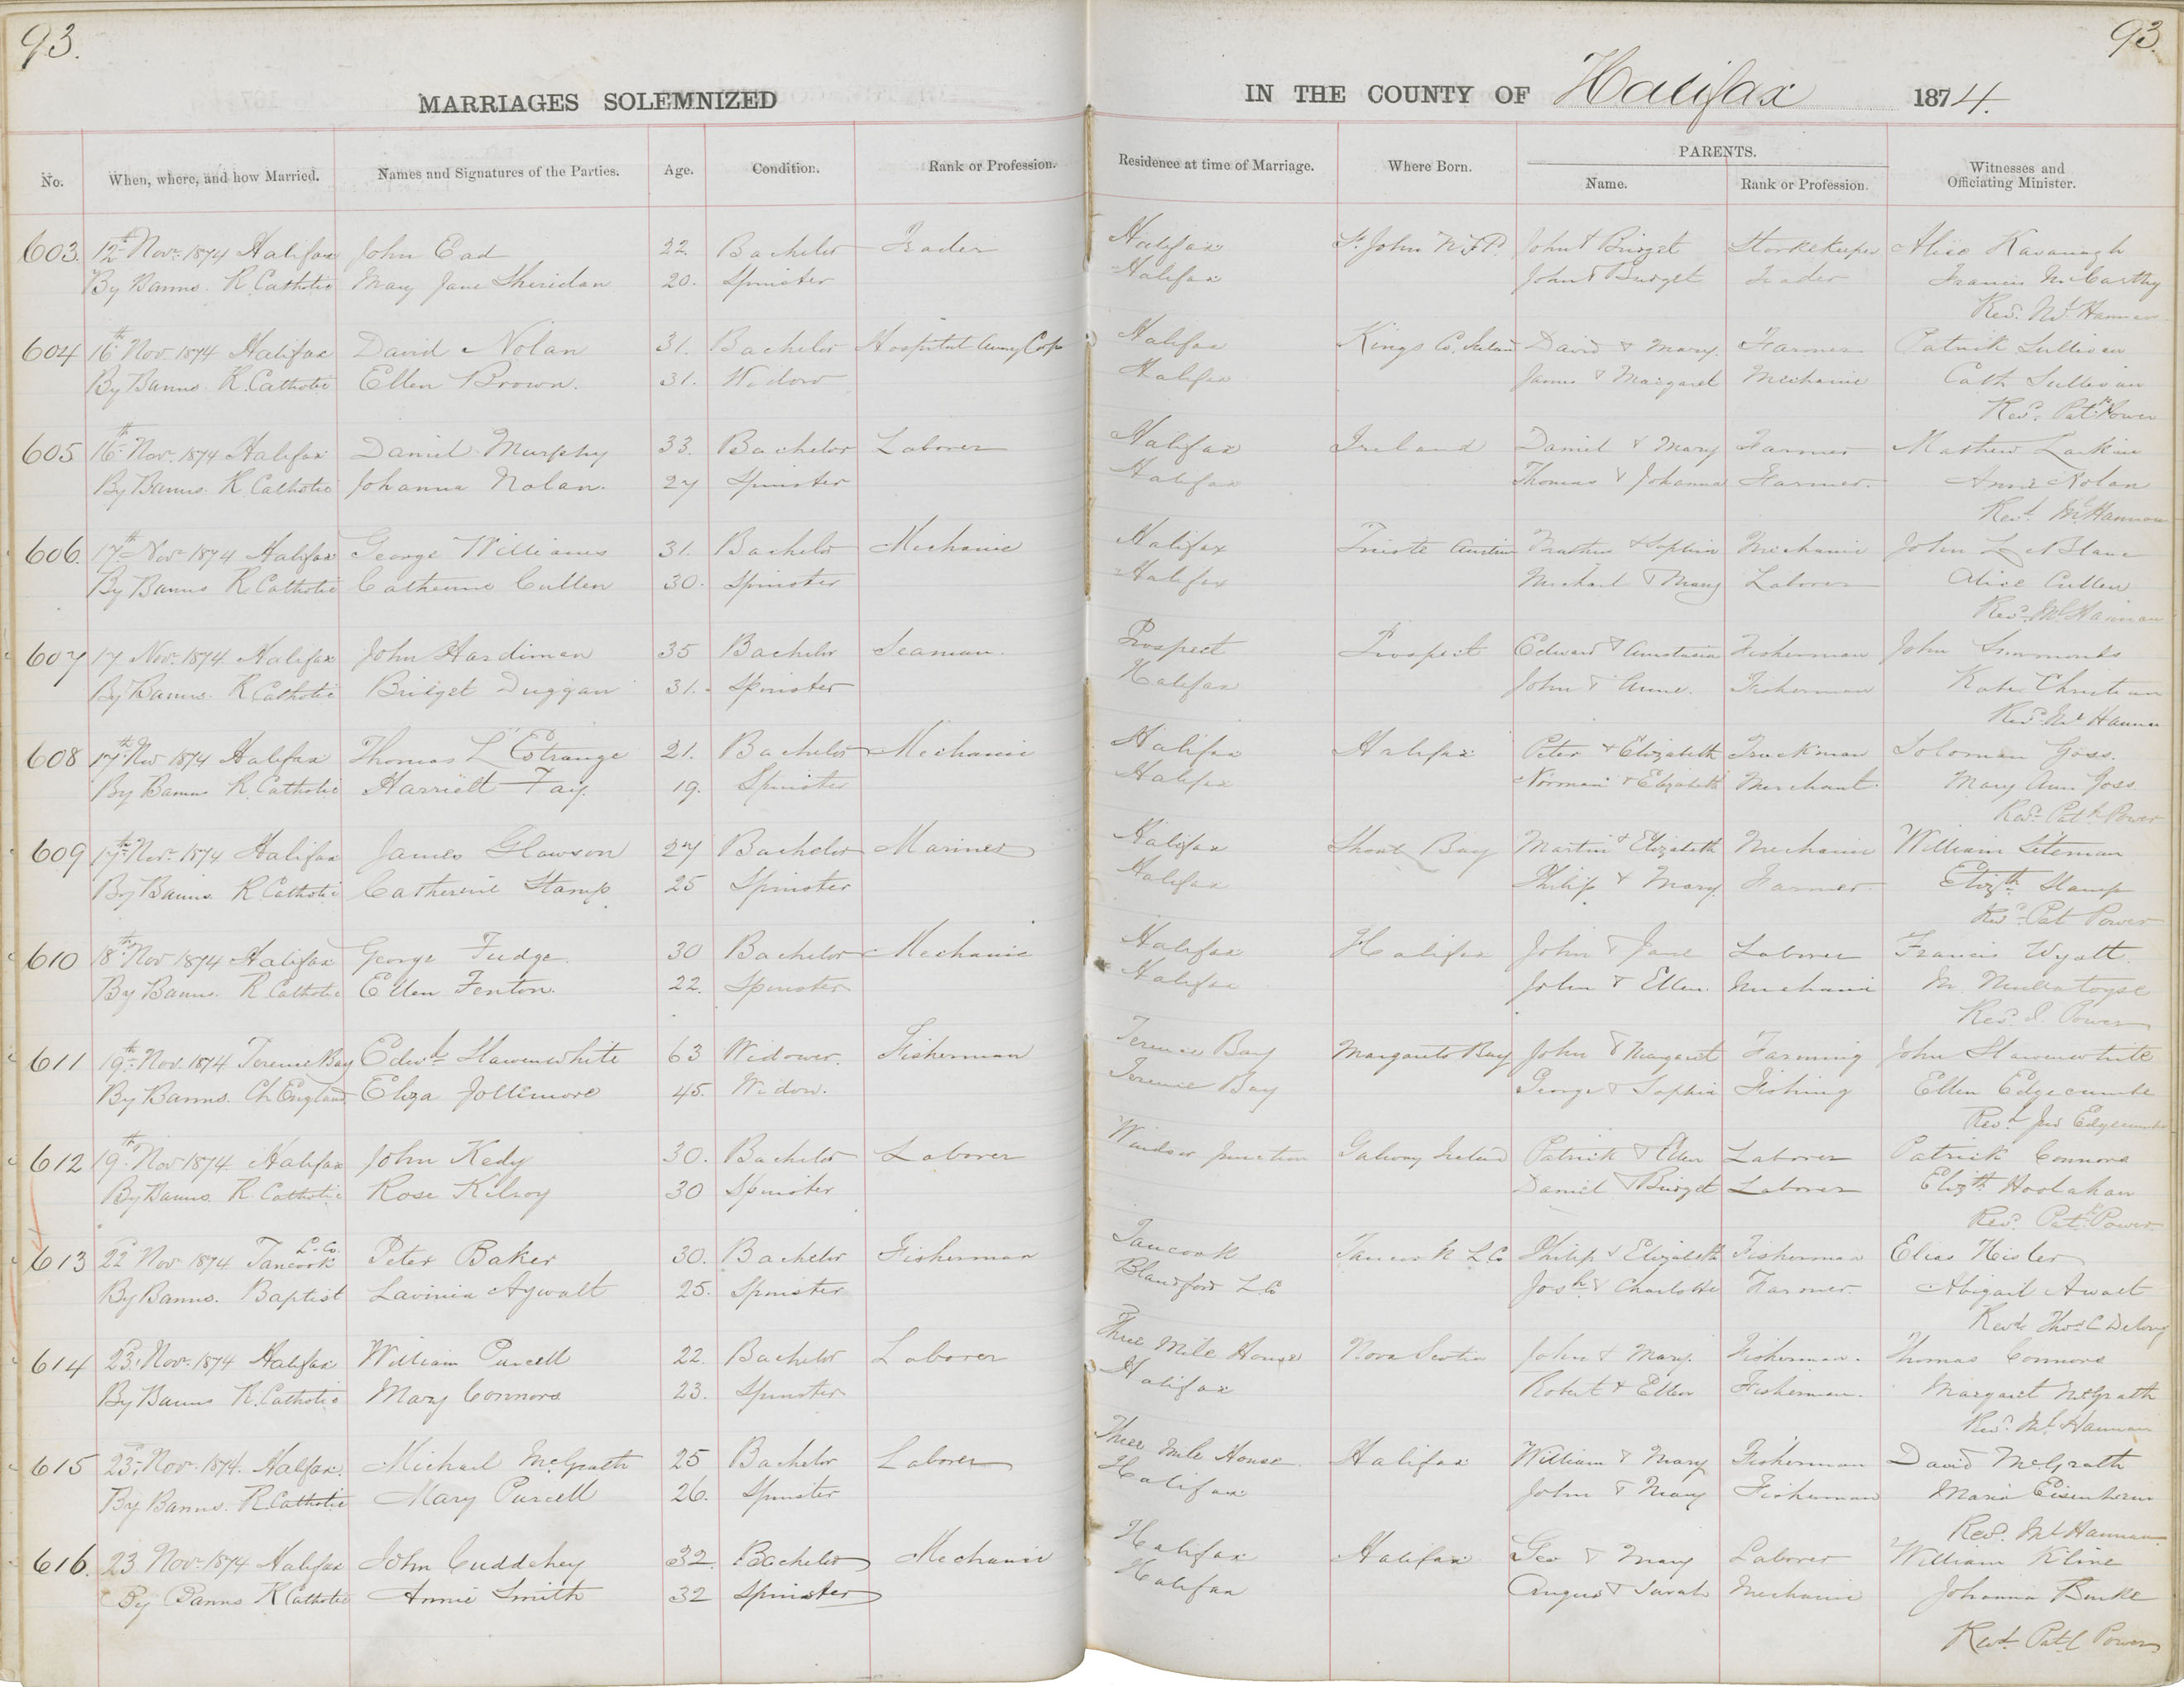 93.
93.
MARRIAGES SOLEMNIZED IN THE COUNTY OF Halifax 1874.
No. When, where, and how Married. Names and Signatures of the Parties. Age. Condition. Rank or Profession. Residence at time of Marriage. Where Born. PARENTS. Name. Rank or Profession. Witnesses and Officiating Minister.
603. 12th Novr 1874 Halifax John Ead 22. Bachelor Trader Halifax St. John NFD. John & Bridget Storekeeper Alice Kavanagh
By Banns. R Catholic Mary Jane Sheridan 20. Spinster Halifax John & Bridget Trader Francis McCarthy
Revd. Mt Hannan
604 16th Nov 1874 Halifax David Nolan 31. Bachelor Hospital Army Corp Halifax Kings Co, Ireland David & Mary. Farmer Patrick Sullivan
By Banns. R. Catholic Ellen Brown. 31. Widow Halifax James & Margaret Mechanic Cath Sullivan
Revd. Patk Power
605 16th Novr 1874 Halifax Daniel Murphy 33. Bachelor Laborer Halifax Ireland Daniel & Mary Farmer Mathew Larkin
By Banns. R. Catholic Johanna Nolan. 27 Spinster Halifax Thomas & Johanna Farmer. Annie Nolan
Revd. Ml Hannan
606. 17th Novr 1874 Halifax George Williams 31. Bachelor Mechanic Halifax Trieste Austria & Sophia Mechanic John LeBlanc
By Banns R. Catholic Catherine Cullen 30. Spinster Halifax Michael & Mary Laborer Alice Cullen
Revd. Ml Hannan
607 17 Novr 1874. Halifax John Hardiman 35 Bachelor Seaman. Prospect Prospect Edward & Anastasia Fisherman John Simmonds
By Banns. R Catholic Bridget Duggan 31. Spinster Halifax John & Anne. Fisherman Kate Christian
Revd. Ml Hannan
608 17th Nov 1874 Halifax Thomas L'Estrange 21. Bachelor Mechanic Halifax Halifax Peter & Elizabeth Truckman Soloman Goss.
By Banns R. Catholic Harriett Fay. 19. Spinster Halifax Norman & Elizabeth Merchant. Mary Ann Goss
Revd. Patk Power
609 17th Novr 1874 Halifax James Glawson 27 Bachelor Mariner Halifax Shoal Bay Martin & Elizabeth Mechanic William Siteman
By Banns R Catholic Catherine Stamp 25 Spinster Halifax Philip & Mary. Farmer. Elizth Stamp
Revd. Pat Power
610 18th Nov 1874 Halifax George Fudge. 30 Bachelor Mechanic Halifax Halifax John & Jane Laborer Francis Wyatt.
By Banns. R Catholic Ellen Fenton. 22. Spinster Halifax John & Ellen. Mechanic M.
Revd. P. Power
611 19th Nov 1874 Terence Bay Edwd Slawenwhite 63 Widower. Fisherman Terence Bay Margarets Bay John & Margaret Farming John Slawenwhite
By Banns. Ch England Eliza Jollimore 45. Widow. Terence Bay George & Sophia Fishing Ellen Edgecumbe
Revd Jno Edgecumbe
612 19th Nov 1874 Halifax John Kedy 30. Bachelor Laborer Windsor Junction Galway Ireland Patrick & Ellen Laborer Patrick Connors
By Banns R. Catholic Rose Kilroy 30 Spinster Daniel & Bridget Laborer Elizth Hoolahan
Revd. Patk Power
613 22d Nov 1874 Tancook L. Co. Peter Baker 30. Bachelor Fisherman Tancook Tancook L. Co Philip & Elizabeth Fisherman Elias Heisler
By Banns. Baptist Lavinia Aywalt 25. Spinster Blandford L Co Josh & Charlotte Farmer. Abigail Awalt
Revd Thos C Delong
614 23d Novr 1874 Halifax William Purcell 22. Bachelor Laborer Three Mile House Nova Scotia John & Mary. Fisherman. Thomas Connors
By Banns R. Catholic Mary Connors 23. Spinster Halifax Robert & Ellen Fisherman. Margaret McGrath
Revd. Ml Hannan
615 23d Novr 1874. Halifax. Michael McGrath 25 Bachelor Laborer Three Mile House. Halifax William & Mary Fisherman David McGrath
By Banns. R Catholic Mary Purcell 26. Spinster Halifax John & Mary Fisherman Maria
Revd. Ml Hannan
616. 23 Novr 1874 Halifax John Cuddehey 32. Bachelor Mechanic Halifax Halifax Geo & Mary Laborer William Kline
By Banns R Catholic Annie Smith 32 Spinster Halifax Angus & Sarah Mechanic Johanna Burke
Revd. Patk Power